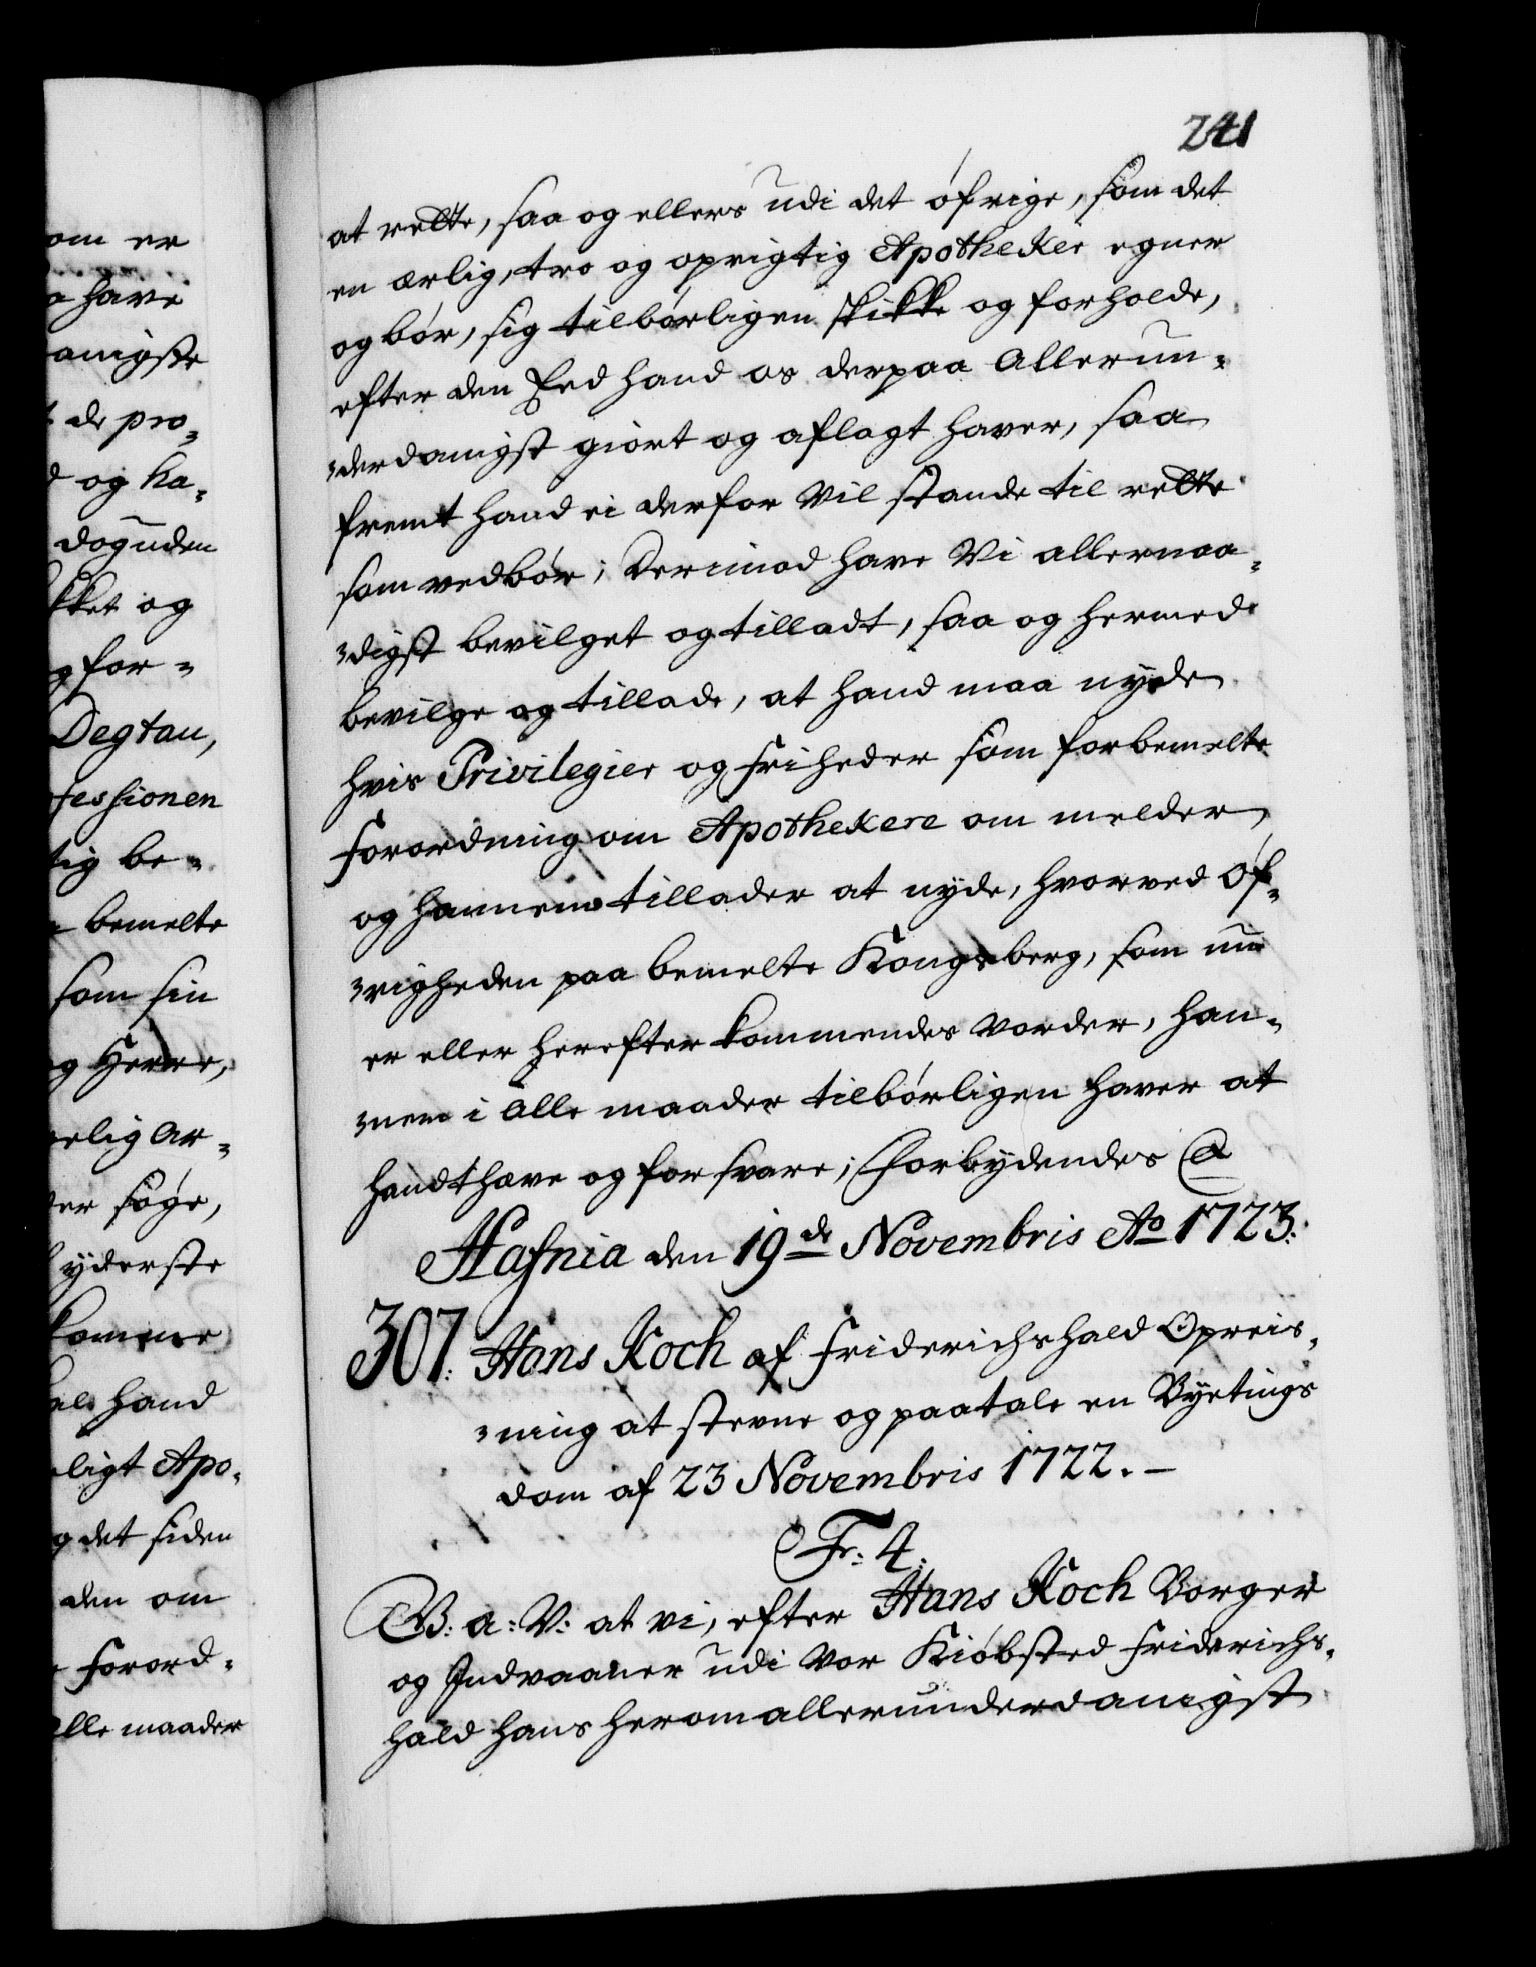 241
at rette, saa og ellers udi det øfrige, som det
en ærlig, tro og oprigtig Apotheker egner
og bør, sig tilbørligen skikke og forholde,
efter den Eed hand os derpaa allerun-
derdanigst giort og aflagt haver, saa
fremt hand ei derfor vil stande til rette
som vedbør; Derimod have Vi allernaa-
digst bevilget og tilladt, saa og hermed
bevilge og tillade, at hand maa nyde
hvis Privilegier og friheder som forbemelte
forordning om Apothekere om melder,
og hannem tillader at nyde, hvorved Øf-
righeden paa bemelte Kongsberg, som nu
er eller herefter kommendes vorder, han-
nem i alle maader tilbørligen haver at
handthæve og forsvare; Forbydendes &
Hafnia den 19de Novembris Ao 1723:
307: Hans Koch af Friderichshald Opreis-
ning at stevne og paatale en Byetings
dom af 23 Novembris 1722. –
Fr: 4:
G: a: V: at vi, efter Hans Koch Borger
og Indvaaner udi vor Kiøbsted Friderichs-
hald hans herom allerunderdanigst
om er
have
anigste
de pro-
og ha-
dog uden
kket og
for-
Degtau,
fessionen
tig be-
bemelte
som sin
og Herre,
elig Ar-
der søge,
yderste
komme
hand
ligt Apo-
og det siden
den om
Forord-
alle maader